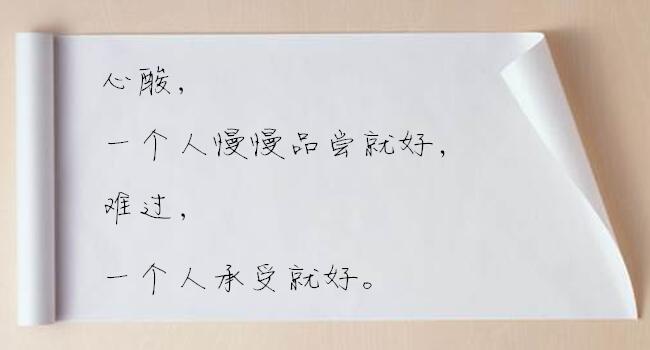 心酸,
一个人慢慢品尝就好,
难过,
一个人承受就好。